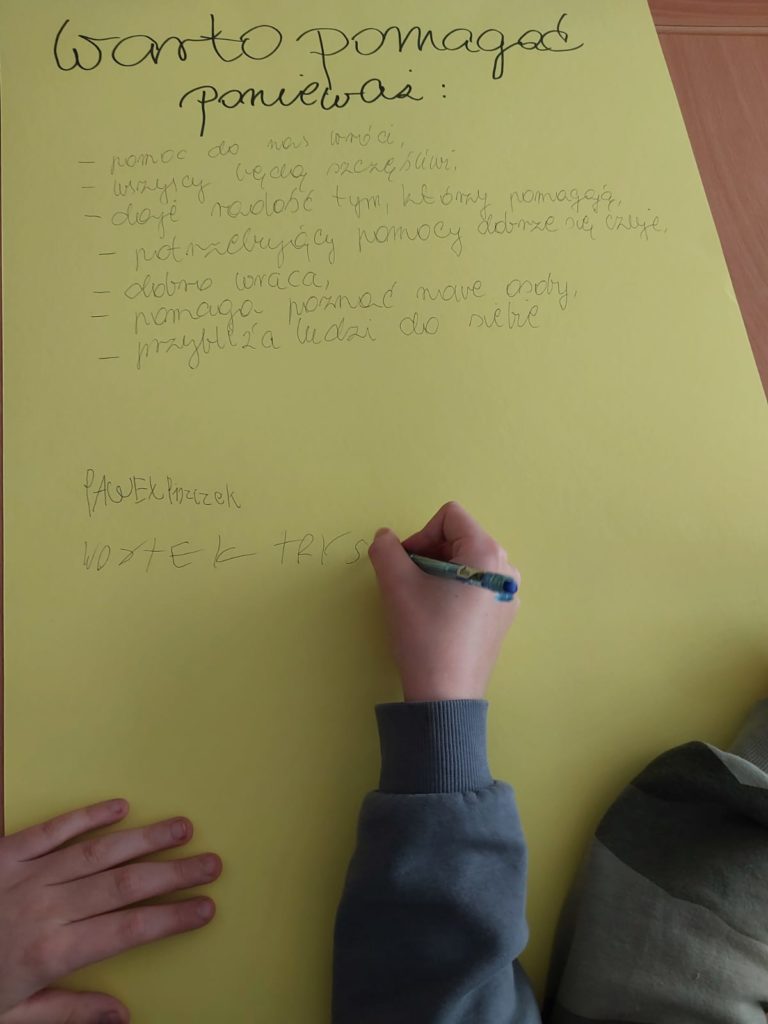 Warto pomagać
ponieważ:
– pomoc do nas wróci,
– wszyscy będą szczęśliwi,
– daje radość tym, którzy pomagają,
– potrzebujący pomocy dobrze się czuje,
– dobro wraca,
– pomaga poznać nowe osoby,
– przybliża ludzi do siebie
PAWEŁ